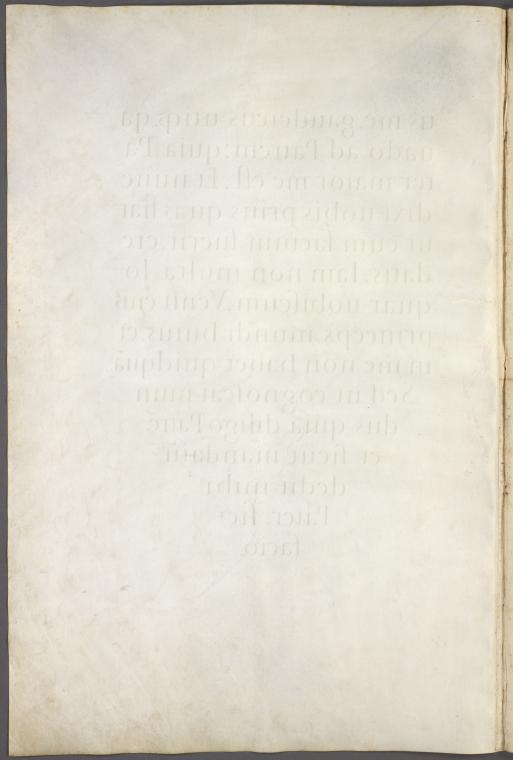 us me, gauderetis utiq;, qa
uado ad Patrem: quia Pa
ter maior me est. Et nunc
dixi uobis prius quā fiat
ut cum factum fuerit, cre
datis. Iam non multa lo
quar uobiscum. Venit enī
princeps mundi huius, et
in me non habet quidquā.
Sed ut cognoscat mun
dus quia diligo Patrē
et sicut mandatū
dedit mihi
Pater, sic
facio.